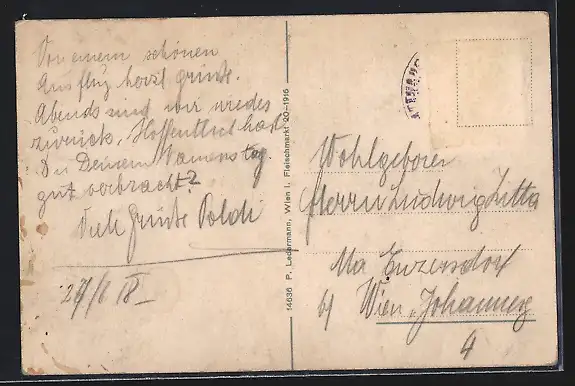 Von einem schönen
Ausflug herzl. Grüße.
Abends sind wir wieder
zurück. Hoffentlich hast
Du Deinen Namenstag
gut verbracht?
Viele Grüße Poldi
27/6 18
14636 P. Ledermann, Wien I. Fleischmarkt 20-1916
Wohlgeboren
Herrn Ludwig Zitta
Ma Enzersdorf
b/ Wien, Johannesg
4